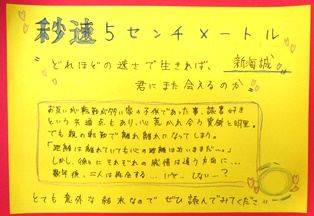 秒速5センチメートル
どれほどの速さで生きれば、
新海誠
君にまた会えるのか
お互いが転勤が多い家の子供であった事、読書好き
という共通点もあり、心惹かれ合う貴樹と明里。
でも親の転勤で離れ離れになってしまう。
「距離は離れていても心の距離は近いままだ…。」
しかし、徐々にそれぞれの感情は違う方向に…
数年後、二人は再会する…いや…しない…?
とても意外な結末なので ぜひ読んでみてください